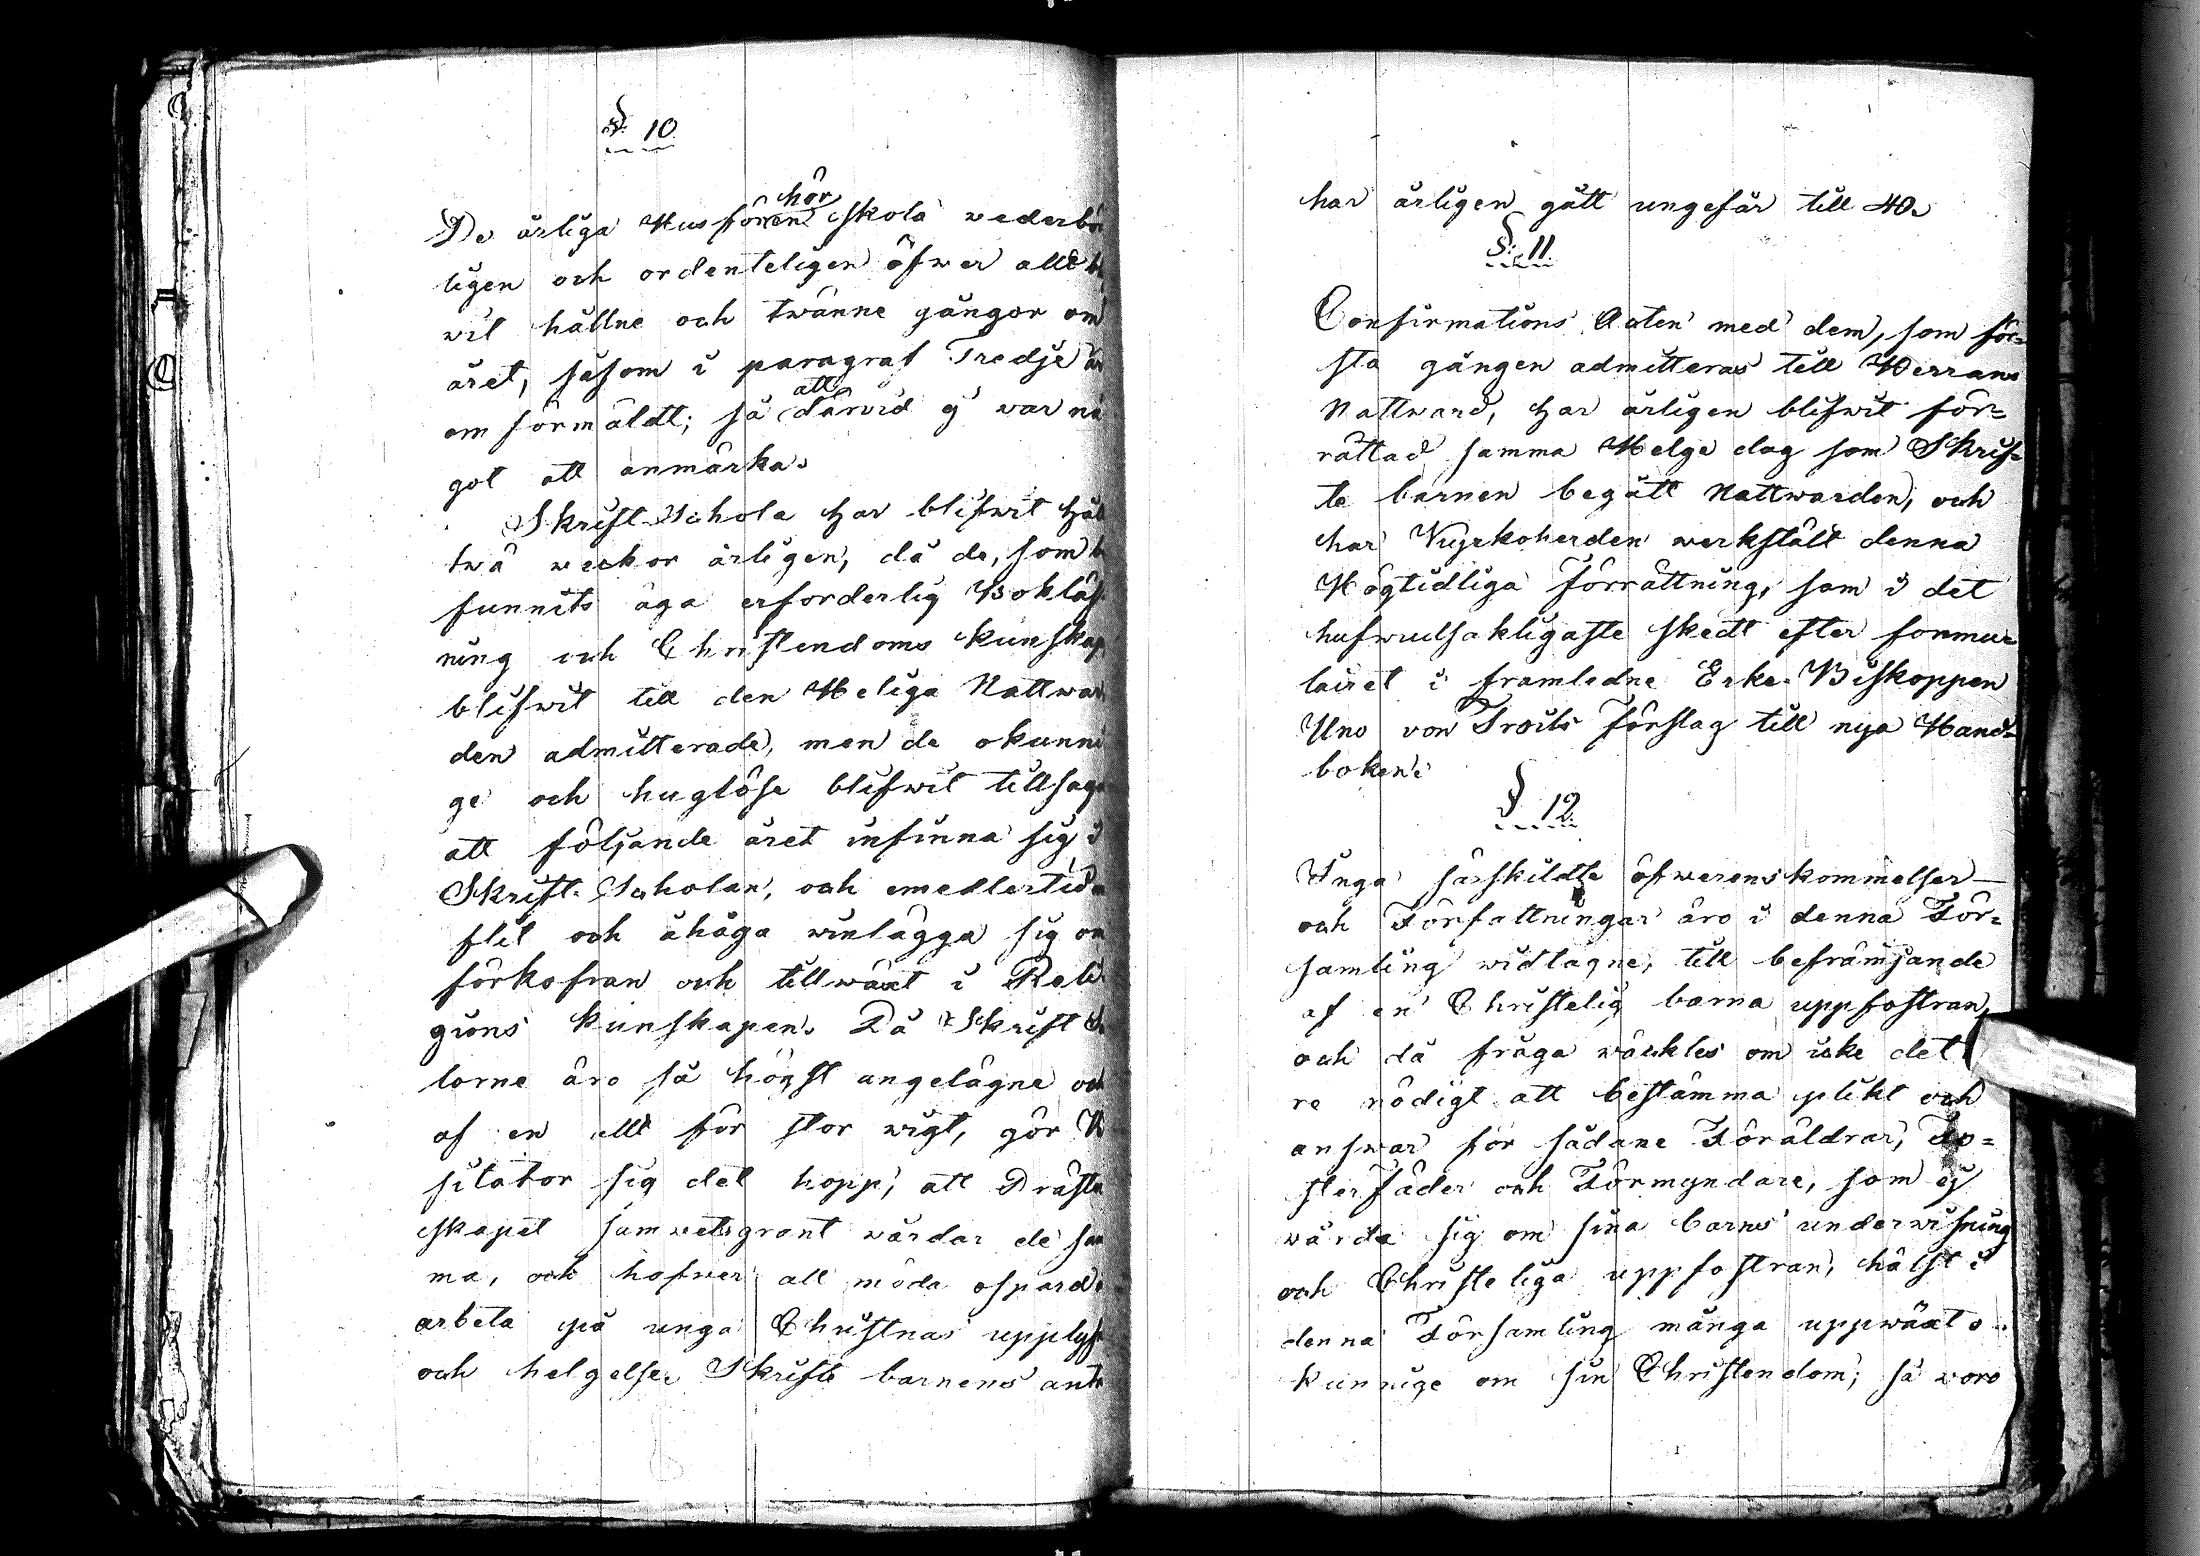 § 10
hör
De årliga Husfören skola wederbö
ligen och ordenteligen öfwer allt bli
wit hållne och twänne gångor om
året, såsom i paragraf Tredje är
om förmäldt; så att därvid ej war nå
got att anmärka.
Skrift-Schola har blifwit hål
twå weckor årligen, då de, som be
funnits äga erforderlig Bokläs
ning och Christendoms kunskap
blifwit till den Heliga Nattwar
den admitterade, men de okunni
ge och huglöse blifwit tillsagd
att följande året infinna sig i
Skrift-Scholan, och emedlertid
flit och åhåga winlägga sig om
förkofran och tillwäxt i Reli
gions kunskapen. Då Skrift Sc
lorne äro så högst angelägne och
af en allt för stor wigt, gör Wi
sitator sig det hopp, att Präste
skapet samwetsgrant wårdar de sam
ma, och hofwer all möda ospard
arbeta på unga Christnas upplys
och helgelse. Skrifte barnens anta
har årligen gått ungefär till 40.
§. 11.
Confirmations Acten med dem, som för=
sta gången admitteras till Herrans
Nattward, har årligen blifwit för=
rättad samma Helge dag som Skrif=
te barnen begått Nattwarden, och
har Kyrkoherden werkstält denna
Högtidliga Förrättning, som i det
hufwudsakligaste skedt efter formu=
lairet i framledne Erke-Biskoppen
Uno von Troils Förslag till nya Hand=
boken.
§ 12.
Inga särskildte öfwerenskommelser
och Författningar äro i denna För=
samling widtagne, till befrämjande
af en Christelig barna uppfostran,
och då fråga wäcktes om icke det
re nödigt att bestämma plikt och
answar för sådane Föräldrar, Fo=
sterfäder och Förmyndare, som ej
wårda sig om sina barns underwisning
och Christeliga uppfostran, hälst i
denna Församling många uppwäxt o=
kunnige om sin Christendom; så woro